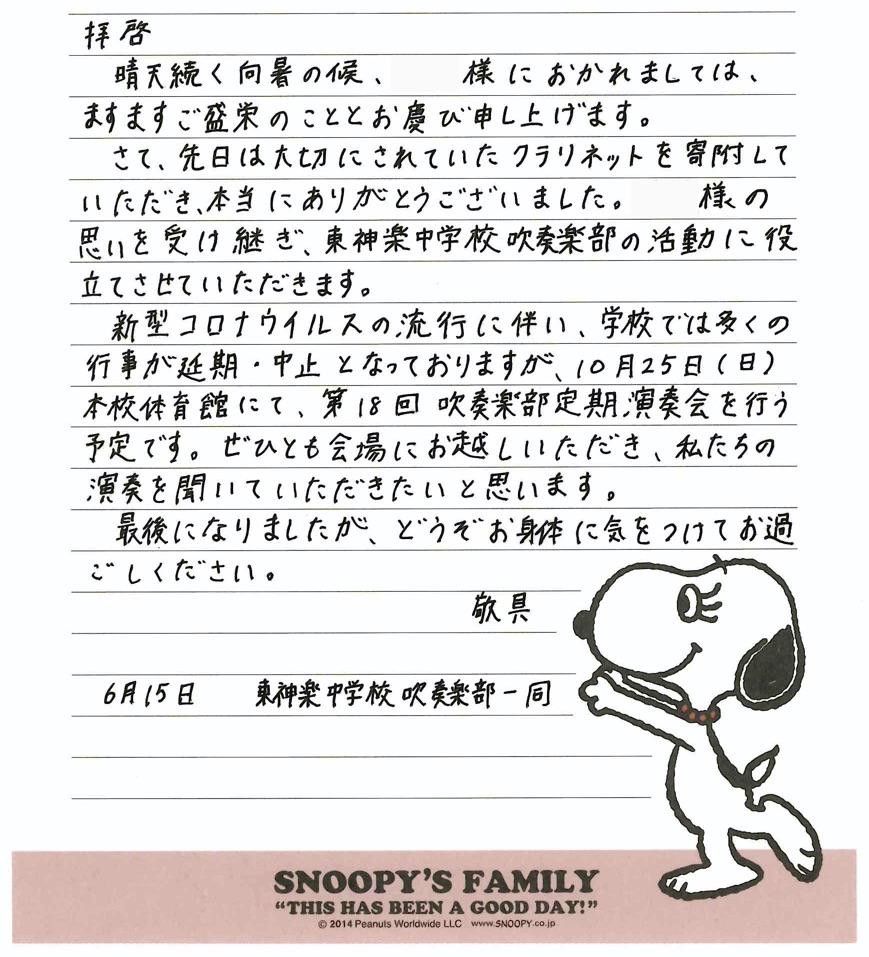 拝啓
晴天続く向暑の候、 様におかれましては、
ますますご盛栄のこととお慶び申し上げます。
さて、先日は大切にされていたクラリネットを寄附して
いただき、本当にありがとうございました。 様の
思いを受け継ぎ、東神楽中学校吹奏楽部の活動に役
立てさせていただきます。
新型コロナウイルスの流行に伴い、学校では多くの
行事が延期・中止となっておりますが、10月25日(日)
本校体育館にて、第18回吹奏楽部定期演奏会を行う
予定です。ぜひとも会場にお越しいただき、私たちの
演奏を聞いていただきたいと思います。
最後になりましたが、どうぞお身体に気をつけてお過
ごしください。
敬具
6月15日 東神楽中学校吹奏楽部一同
SNOOPY'S FAMILY
"THIS HAS BEEN A GOOD DAY!"
© 2014 Peanuts Worldwide LLC www.SNOOPY.co.jp